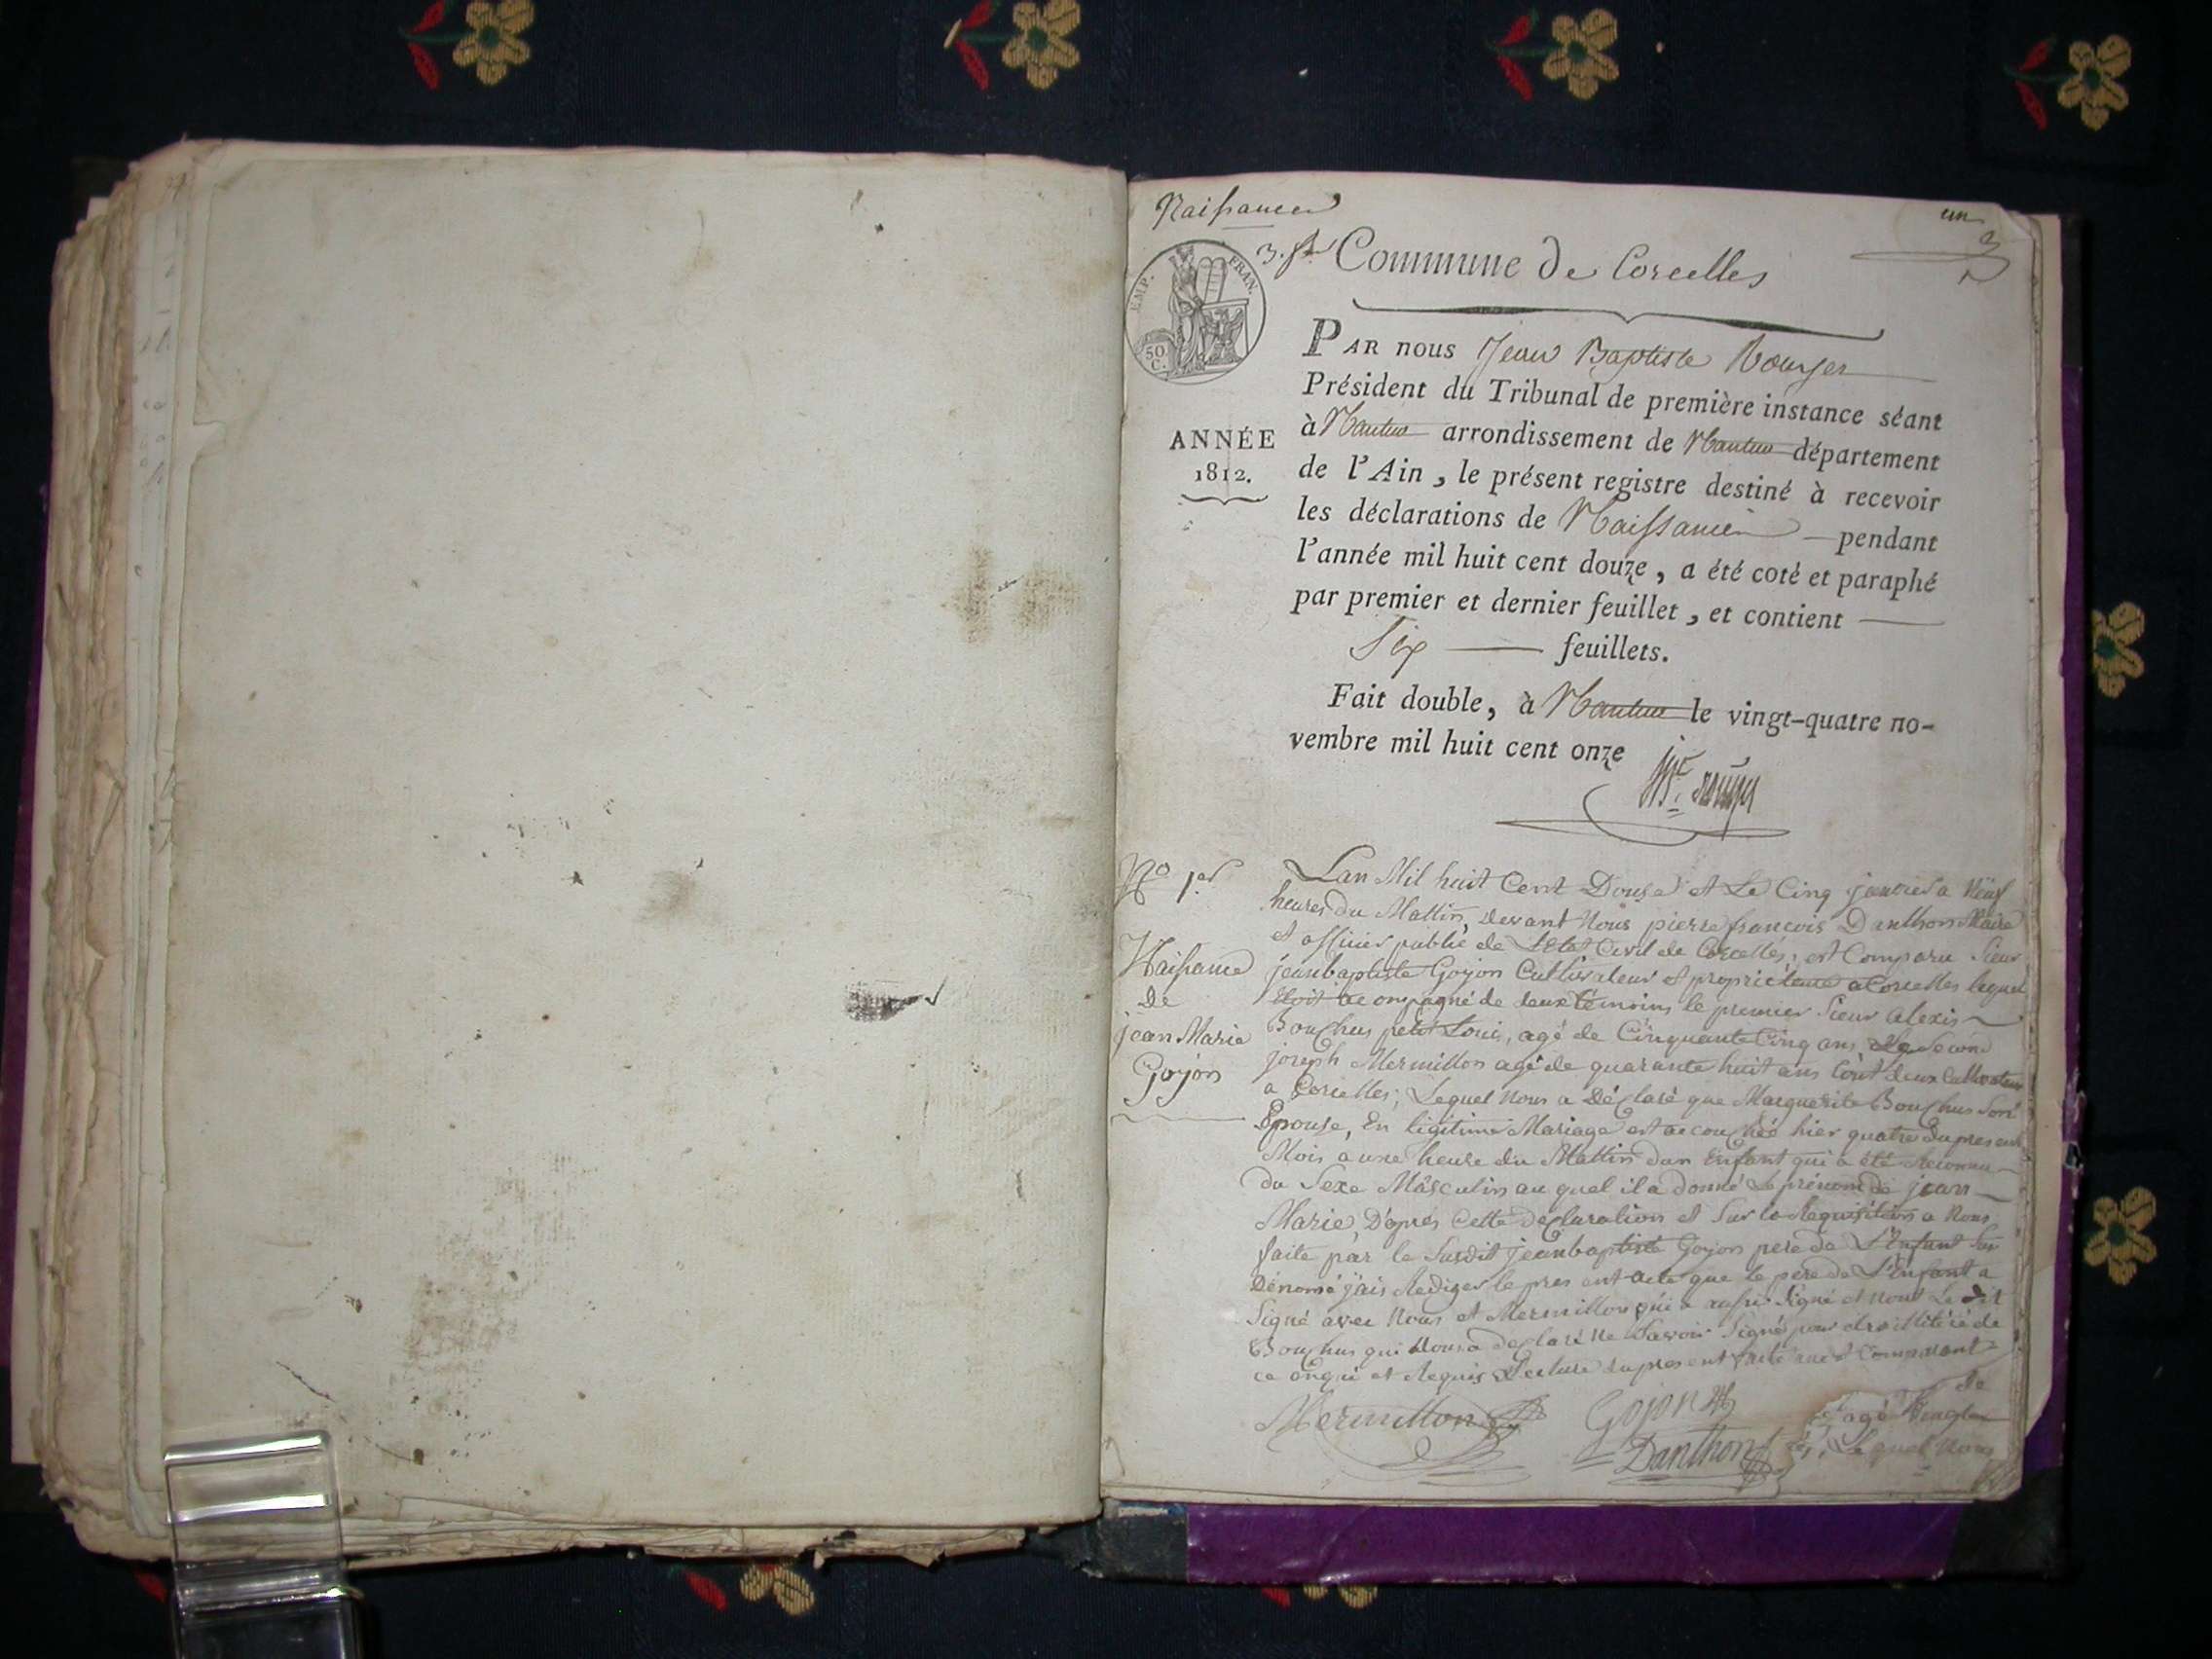 Naissances
un
3.
Commune de Corcelles
EMP. FRAN.
50 C.
PAR nous Jean Baptiste Rouyer
Président du Tribunal de première instance séant
à Nantua arrondissement de Nantua département
ANNÉE
1812.
de l'Ain, le présent registre destiné à recevoir
les déclarations de Naissances pendant
l'année mil huit cent douze, a été coté et paraphé
par premier et dernier feuillet, et contient
Six feuillets.
Fait double, à Nantua le vingt-quatre no-
vembre mil huit cent onze
No 1er
Naissance
de
jean Marie
Gojon
Lan Mil huit Cent Douse et Le Cinq janvier a Neuf
heures du Mattin, devant Nous pierre francois Danthon Maire
et officier public de Letat Civil de Corcelles, est Comparu Sieur
jeanbaptiste Gojon Cultivateur et proprietaire a Corcelles lequel
etoit acompagné de deux temoins le premier Sieur alexis
Bouchus petit Louis, agé de Cinquante Cinq ans, Le Second
joseph Mermillon agé de quarante huit ans tout deux Cultivateur
a Corcelles; Lequel Nous a Déclaré que Marguerite Bouchus Son
Epouse, En legitime Mariage est acouchée hier quatre du present
Mois a une heure du Mattin dun Enfant qui a été Reconnu
du Sexe Masculin au quel il a donné Le prénom de jean
Marie, D'aprés Cette declaration et Sur la Requisition a Nous
faite par le Susdit jeanbaptiste Gojon pere de L'Enfant Sus
Dénomé j'ais Rediger le present acte que le pere de L'Enfant a
Signé avec Nous et Mermillon qui a aussi Signé et nont Le dit
Bouchus qui Nous a declaré Ne Savoir Signé pour etre Illiteré de
ce enqui et Requis Lecture du present faite aux Comparant
Mermillon Gojon
Danthon
de
agé
Lequel Nous